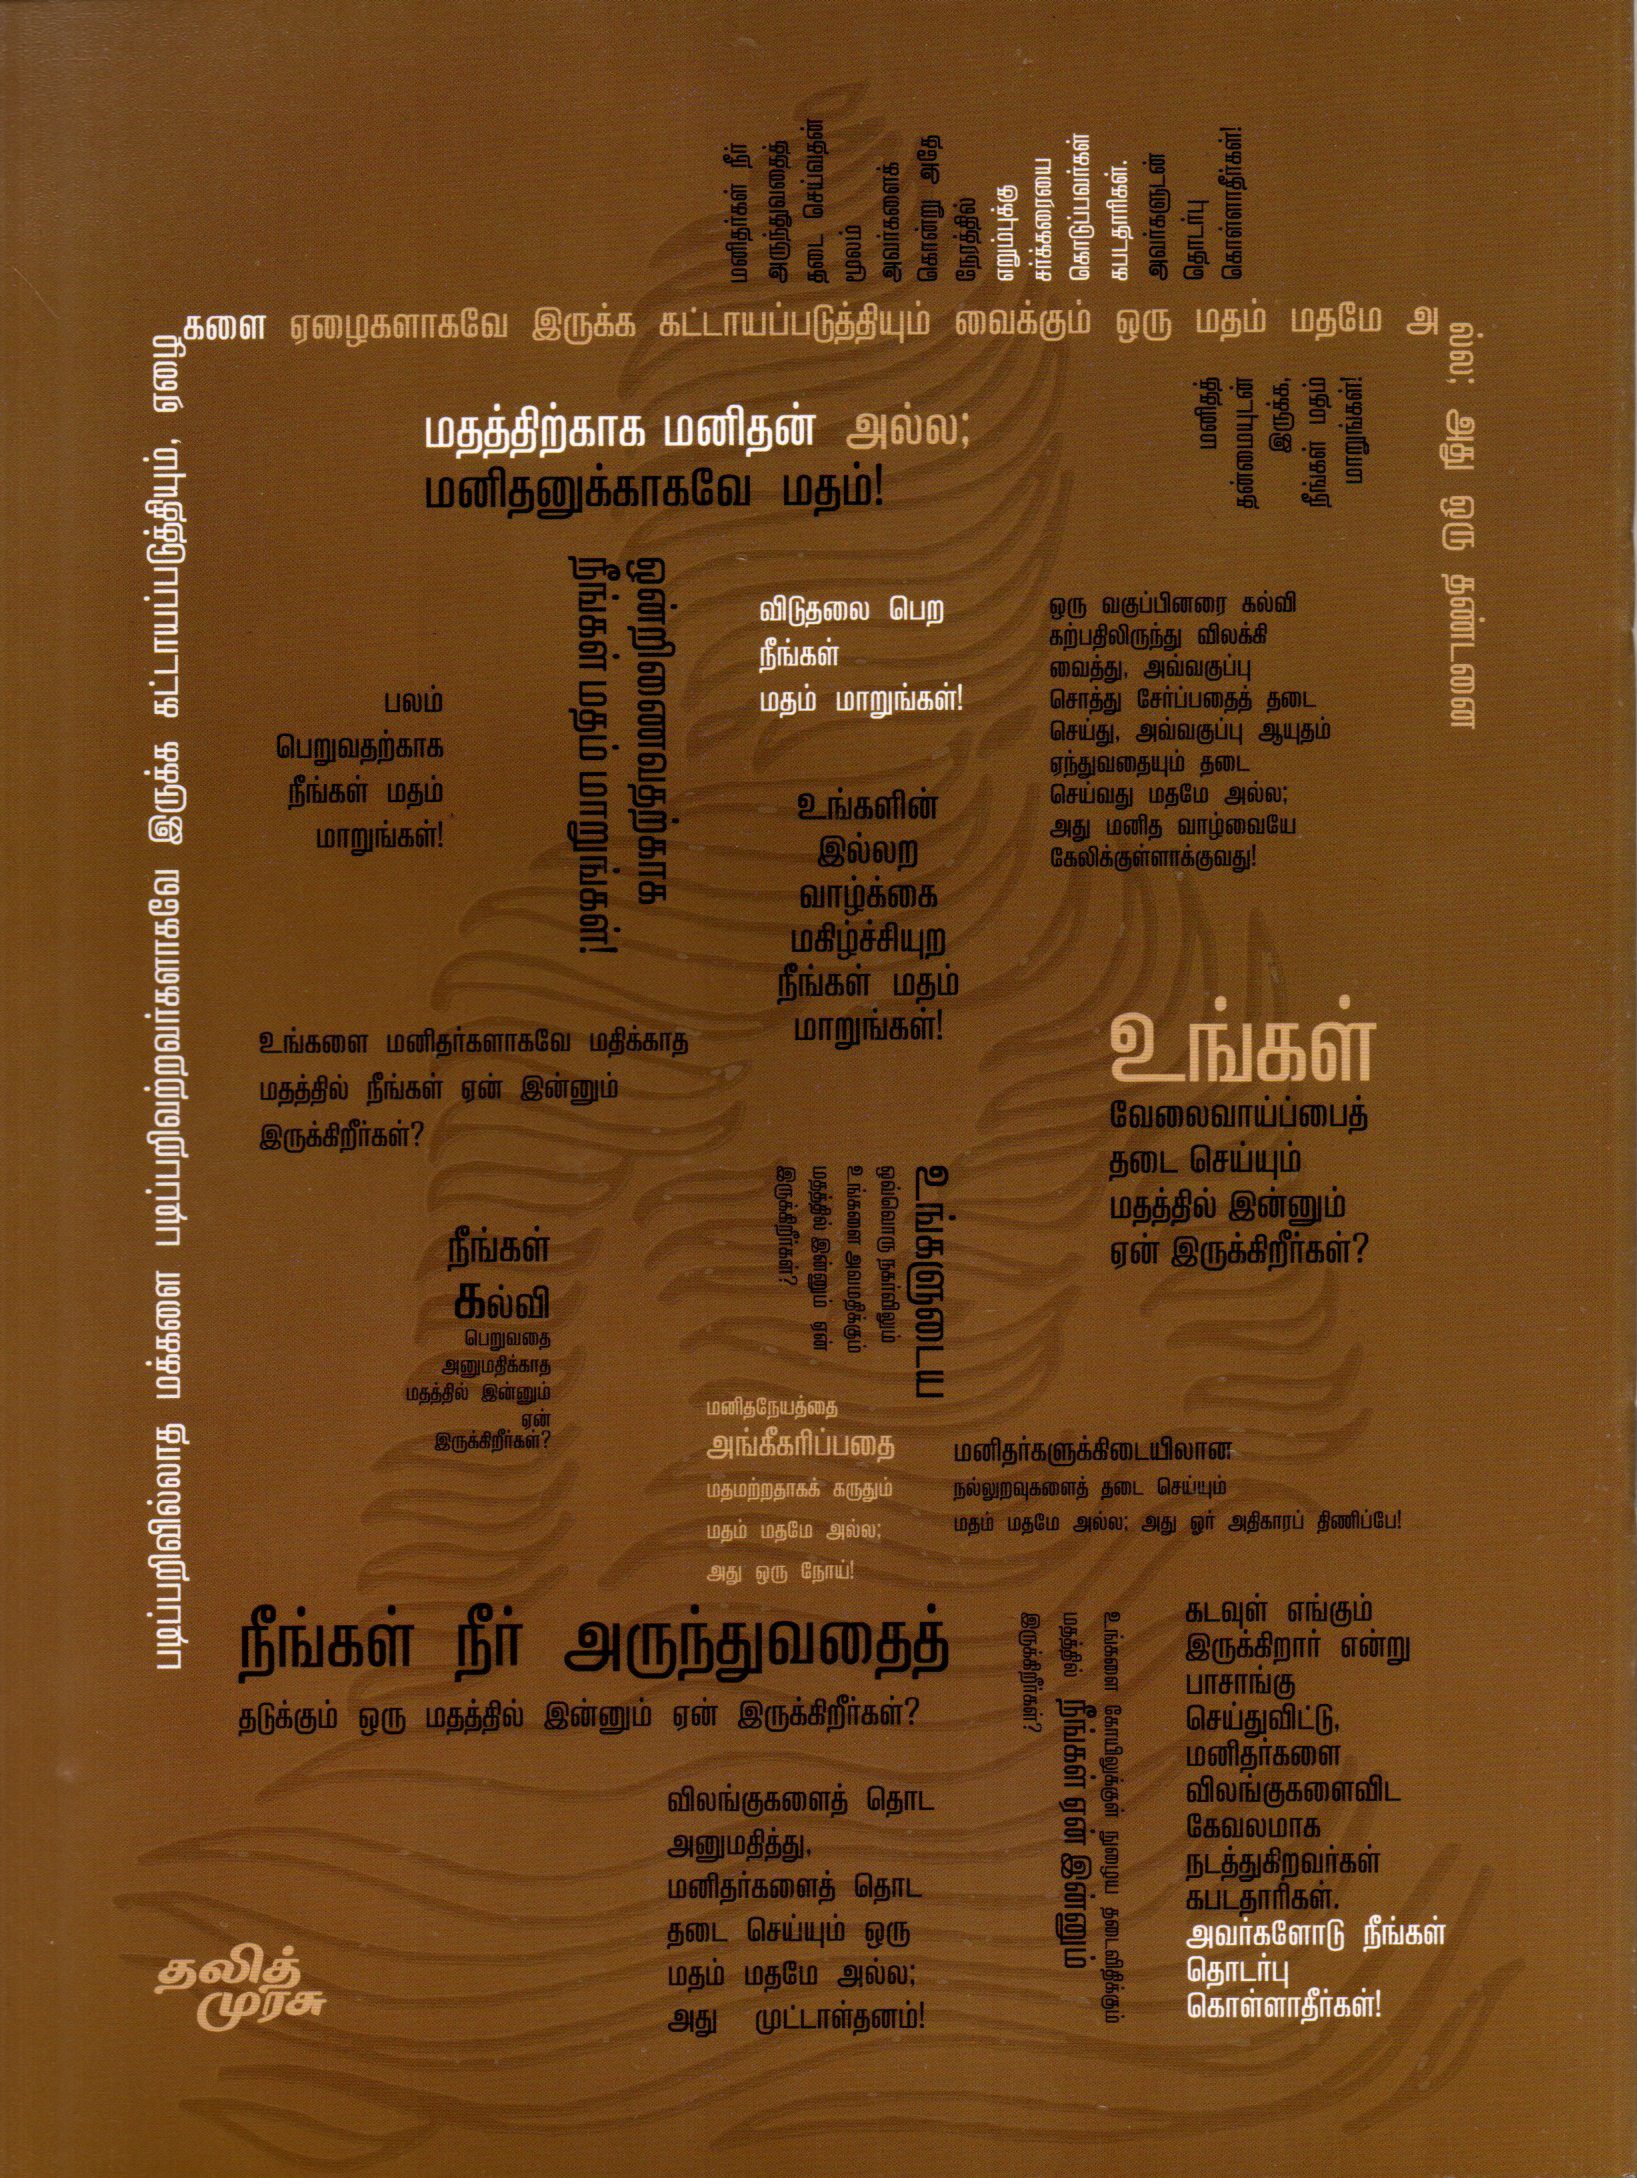 மனிதர்கள் நீர்
அருந்துவதைத்
தடை செய்வதன்
மூலம்
அவர்களைக்
கொன்று அதே
நேரத்தில்
எறும்புக்கு
சர்க்கரையை
கொடுப்பவர்கள்
கபடதாரிகள்.
அவர்களுடன்
தொடர்பு
கொள்ளாதீர்கள்!
படிப்பறிவில்லாத மக்களை படிப்பறிவற்றவர்களாகவே இருக்க கட்டாயப்படுத்தியும், ஏழை
களை ஏழைகளாகவே இருக்க கட்டாயப்படுத்தியும் வைக்கும் ஒரு மதம் மதமே அ
ல்ல; அது ஒரு தண்டனை
மதத்திற்காக மனிதன் அல்ல;
மனிதனுக்காகவே மதம்!
மனிதத்
தன்மையுடன்
இருக்க,
நீங்கள் மதம்
மாறுங்கள்!
பலம்
பெறுவதற்காக
நீங்கள் மதம்
மாறுங்கள்!
ஒற்றுமைமிகுந்திருக்க
நீங்கள் மதம் மாறுங்கள்!
விடுதலை பெற
நீங்கள்
மதம் மாறுங்கள்!
ஒரு வகுப்பினரை கல்வி
கற்பதிலிருந்து விலக்கி
வைத்து, அவ்வகுப்பு
சொத்து சேர்ப்பதைத் தடை
செய்து, அவ்வகுப்பு ஆயுதம்
ஏந்துவதையும் தடை
செய்வது மதமே அல்ல;
அது மனித வாழ்வையே
கேலிக்குள்ளாக்குவது!
உங்களின்
இல்லற
வாழ்க்கை
மகிழ்ச்சியுற
நீங்கள் மதம்
மாறுங்கள்!
உங்களை மனிதர்களாகவே மதிக்காத
மதத்தில் நீங்கள் ஏன் இன்னும்
இருக்கிறீர்கள்?
உங்கள்
வேலைவாய்ப்பைத்
தடை செய்யும்
மதத்தில் இன்னும்
ஏன் இருக்கிறீர்கள்?
நீங்கள்
கல்வி
பெறுவதை
அனுமதிக்காத
மதத்தில் இன்னும்
ஏன்
இருக்கிறீர்கள்?
உங்களுடைய
ஒவ்வொரு நகர்விலும்
உங்களை அவமதிக்கும்
மதத்தில் இன்னும் ஏன்
இருக்கிறீர்கள்?
மனிதநேயத்தை
அங்கீகரிப்பதை
மதமற்றதாகக் கருதும்
மதம் மதமே அல்ல;
அது ஒரு நோய்!
மனிதர்களுக்கிடையிலான
நல்லுறவுகளைத் தடை செய்யும்
மதம் மதமே அல்ல; அது ஓர் அதிகாரப் திணிப்பே!
நீங்கள் நீர் அருந்துவதைத்
தடுக்கும் ஒரு மதத்தில் இன்னும் ஏன் இருக்கிறீர்கள்?
உங்களை கோயிலுக்குள் நுழைய தடைவிதிக்கும்
மதத்தில் நீங்கள் ஏன் இன்னும்
இருக்கிறீர்கள்?
கடவுள் எங்கும்
இருக்கிறார் என்று
பாசாங்கு
செய்துவிட்டு,
மனிதர்களை
விலங்குகளைவிட
கேவலமாக
நடத்துகிறவர்கள்
கபடதாரிகள்.
அவர்களோடு நீங்கள்
தொடர்பு
கொள்ளாதீர்கள்!
விலங்குகளைத் தொட
அனுமதித்து,
மனிதர்களைத் தொட
தடை செய்யும் ஒரு
மதம் மதமே அல்ல;
அது முட்டாள்தனம்!
தலித்
முரசு